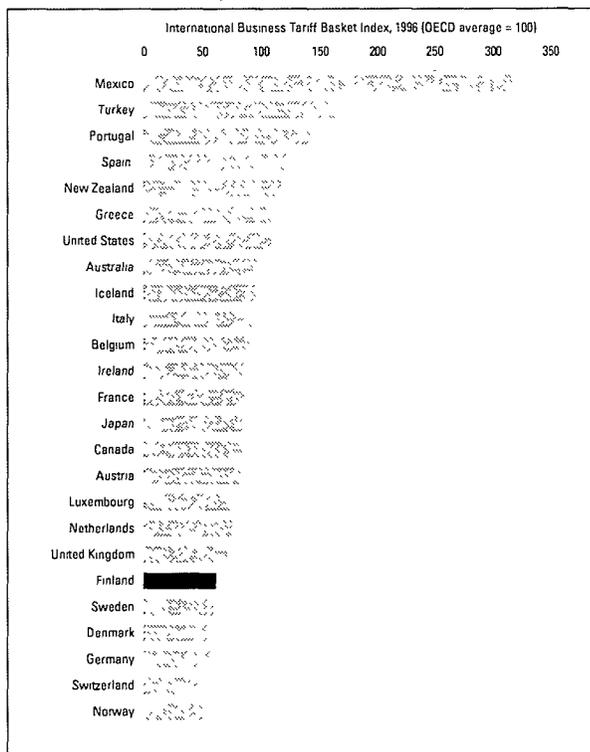 International Business Tariff Basket Index, 1996 (OECD average = 100)
0 50 100 150 200 250 300 350
Mexico
Turkey
Portugal
Spain
New Zealand
Greece
United States
Australia
Iceland
Italy
Belgium
Ireland
France
Japan
Canada
Austria
Luxembourg
Netherlands
United Kingdom
Finland
Sweden
Denmark
Germany
Switzerland
Norway